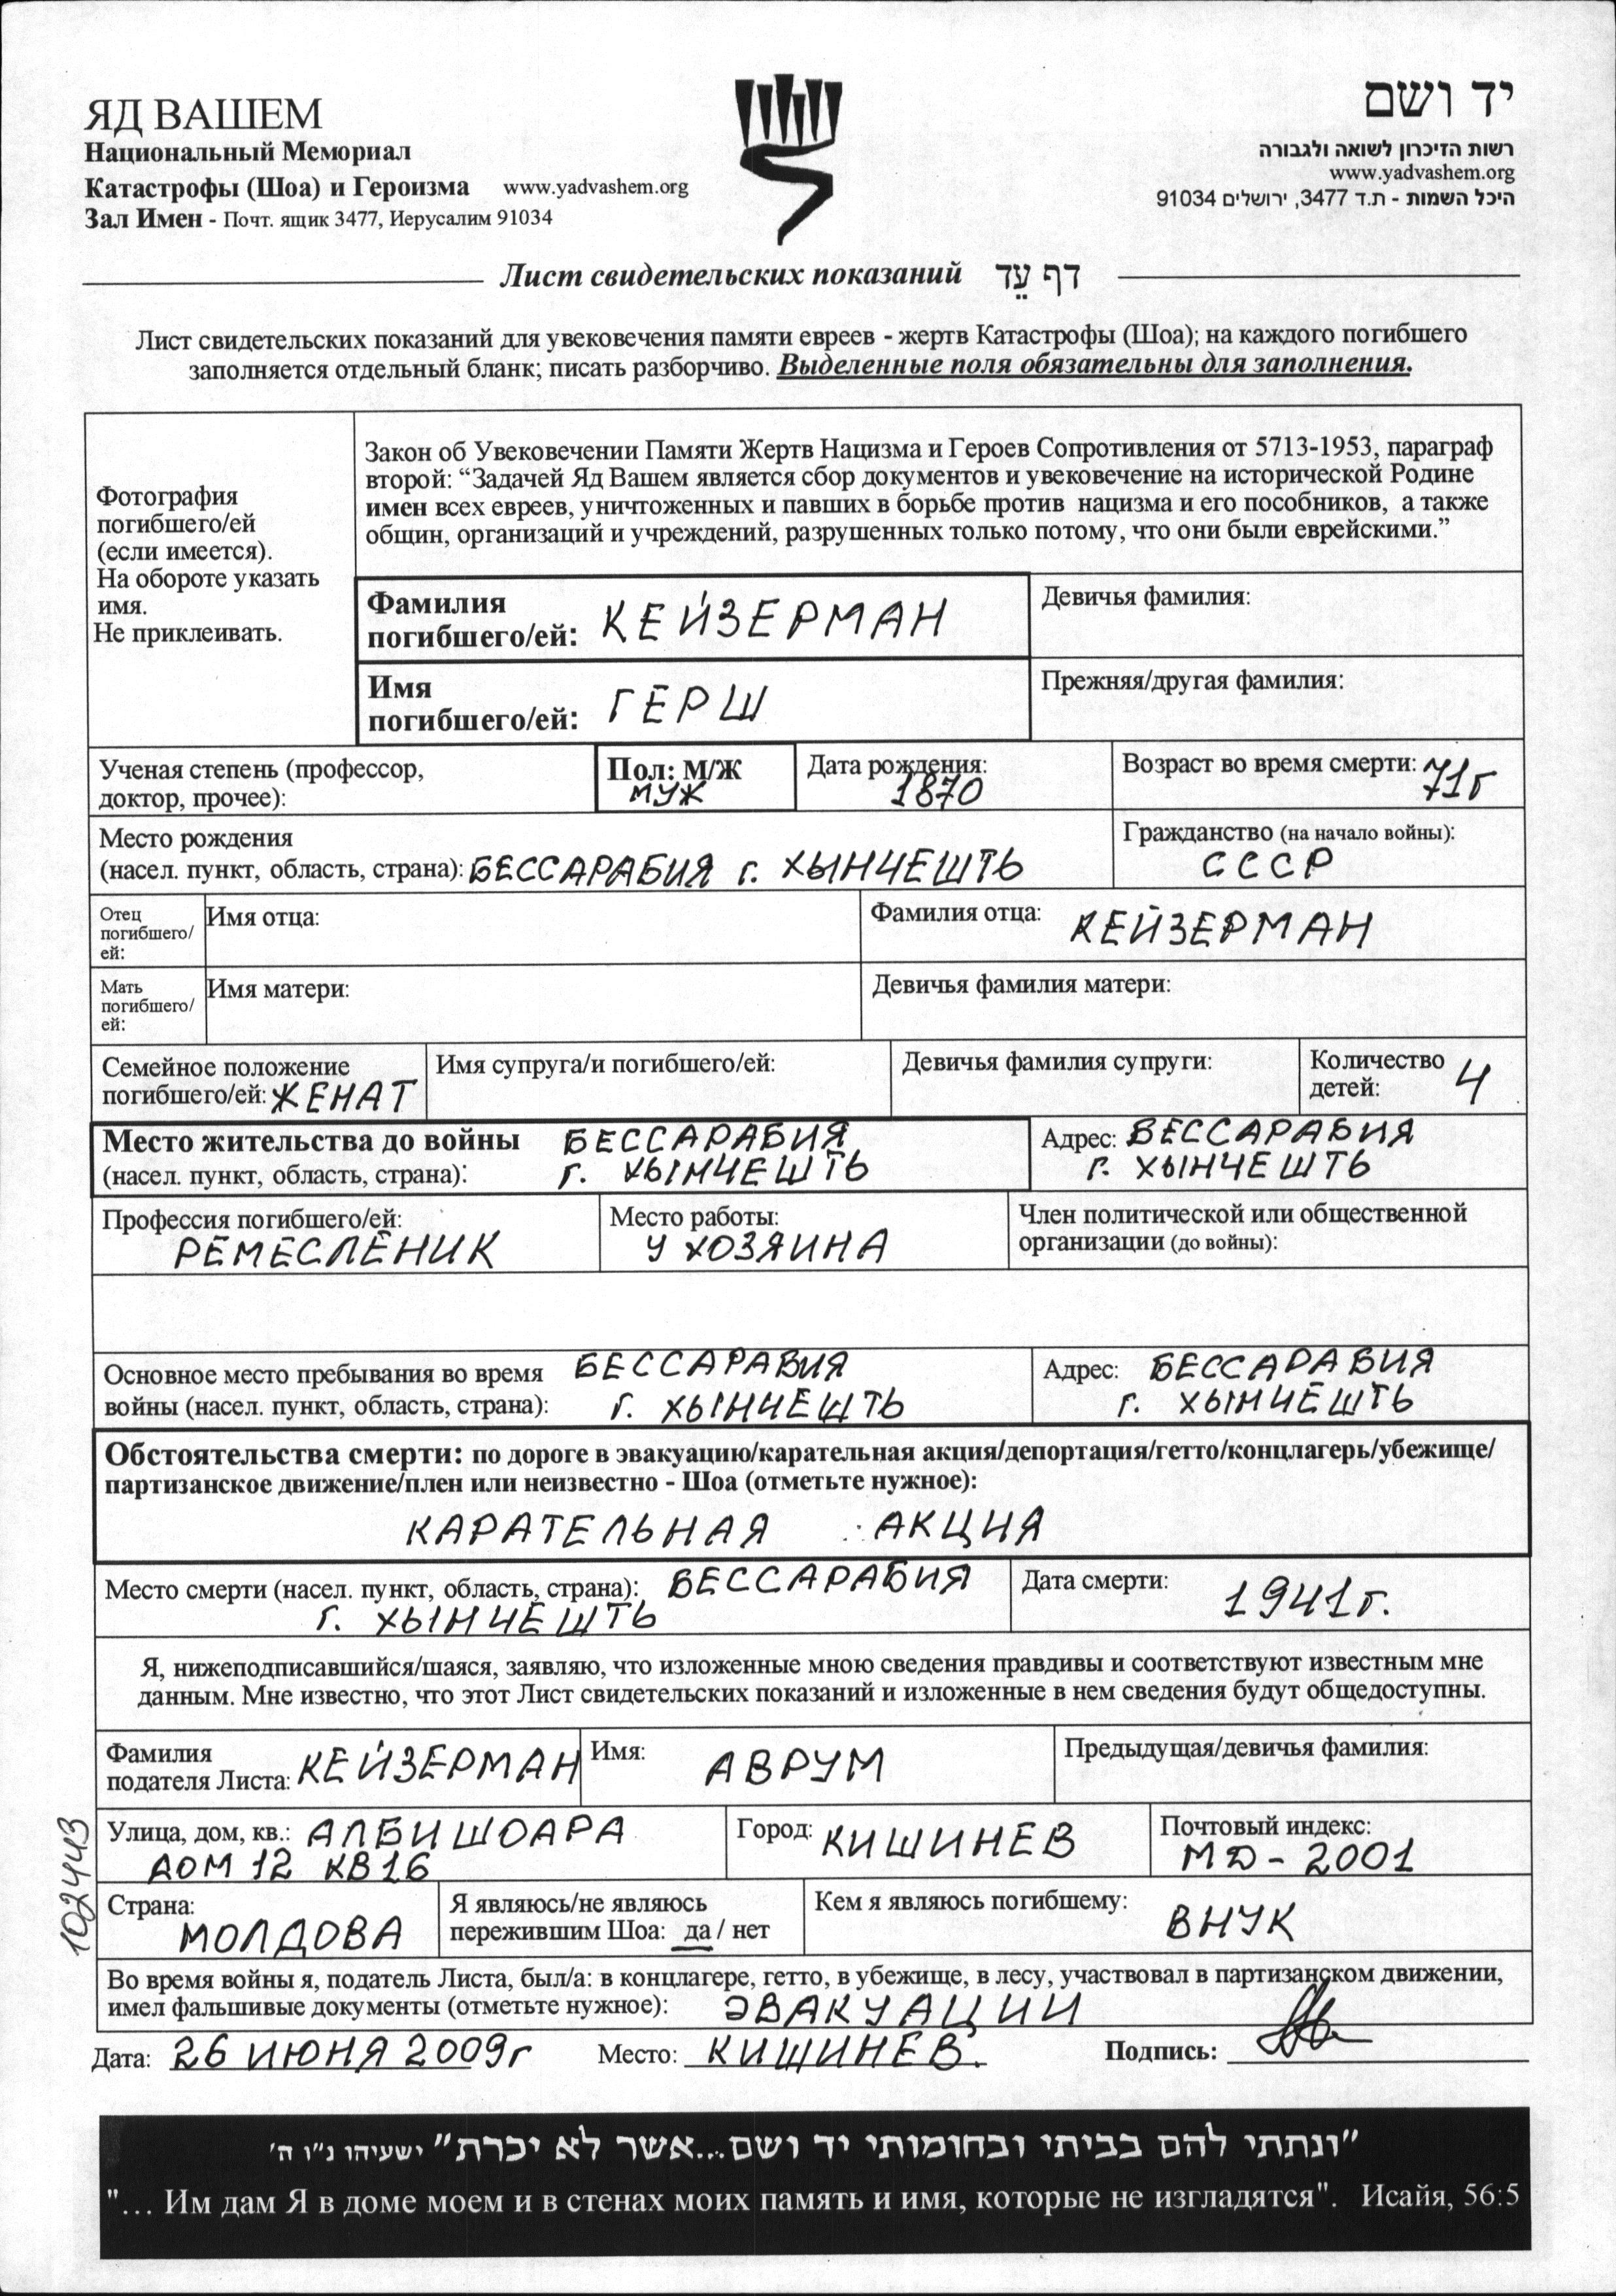 ЯД ВАШЕМ
Национальный Мемориал
Катастрофы (Шоа) и Героизма www.yadvashem.org
Зал Имен - Почт. ящик 3477, Иерусалим 91034
יד ושם
רשות הזיכרון לשואה ולגבורה
www.yadvashem.org
היכל השמות - ת.ד 3477, ירושלים 91034
Лист свидетельских показаний דף עֵד
Лист свидетельских показаний для увековечения памяти евреев - жертв Катастрофы (Шоа); на каждого погибшего
заполняется отдельный бланк; писать разборчиво. Выделенные поля обязательны для заполнения.
Фотография
погибшего/ей
(если имеется).
На обороте указать
имя.
Не приклеивать.
Закон об Увековечении Памяти Жертв Нацизма и Героев Сопротивления от 5713-1953, параграф
второй: “Задачей Яд Вашем является сбор документов и увековечение на исторической Родине
имен всех евреев, уничтоженных и павших в борьбе против нацизма и его пособников, а также
общин, организаций и учреждений, разрушенных только потому, что они были еврейскими.”
Фамилия
погибшего/ей: КЕЙЗЕРМАН
Девичья фамилия:
Имя
погибшего/ей: ГЕРШ
Прежняя/другая фамилия:
Ученая степень (профессор,
доктор, прочее):
Пол: М/Ж
МУЖ
Дата рождения:
1870
Возраст во время смерти: 71г
Место рождения
(насел. пункт, область, страна): БЕССАРАБИЯ г. ХЫНЧЕШТЬ
Гражданство (на начало войны):
СССР
Отец
погибшего/
ей:
Имя отца:
Фамилия отца: КЕЙЗЕРМАН
Мать
погибшего/
ей:
Имя матери:
Девичья фамилия матери:
Семейное положение
погибшего/ей: ЖЕНАТ
Имя супруга/и погибшего/ей:
Девичья фамилия супруги:
Количество
детей: 4
Место жительства до войны БЕССАРАБИЯ
(насел. пункт, область, страна): г. ХЫНЧЕШТЬ
Адрес: БЕССАРАБИЯ
г. ХЫНЧЕШТЬ
Профессия погибшего/ей:
РЕМЕСЛЕНИК
Место работы:
У ХОЗЯИНА
Член политической или общественной
организации (до войны):
Основное место пребывания во время БЕССАРАБИЯ
войны (насел. пункт, область, страна): г. ХЫНЧЕШТЬ
Адрес: БЕССАРАБИЯ
г. ХЫНЧЕШТЬ
Обстоятельства смерти: по дороге в эвакуацию/карательная акция/депортация/гетто/концлагерь/убежище/
партизанское движение/плен или неизвестно - Шоа (отметьте нужное):
КАРАТЕЛЬНАЯ АКЦИЯ
Место смерти (насел. пункт, область, страна): БЕССАРАБИЯ
г. ХЫНЧЕШТЬ
Дата смерти: 1941г.
Я, нижеподписавшийся/шаяся, заявляю, что изложенные мною сведения правдивы и соответствуют известным мне
данным. Мне известно, что этот Лист свидетельских показаний и изложенные в нем сведения будут общедоступны.
Фамилия
подателя Листа: КЕЙЗЕРМАН
Имя: АВРУМ
Предыдущая/девичья фамилия:
Улица, дом, кв.: АЛБИШОАРА
ДОМ 12 КВ16
Город: КИШИНЕВ
Почтовый индекс:
МД-2001
Страна:
МОЛДОВА
Я являюсь/не являюсь
пережившим Шоа: да / нет
Кем я являюсь погибшему:
ВНУК
Во время войны я, податель Листа, был/а: в концлагере, гетто, в убежище, в лесу, участвовал в партизанском движении,
имел фальшивые документы (отметьте нужное): ЭВАКУАЦИИ
Дата: 26 ИЮНЯ 2009г Место: КИШИНЕВ. Подпись:
102443
"ונתתי להם בביתי ובחומותי יד ושם...אשר לא יכרת" ישעיהו נ"ו ה'
"... Им дам Я в доме моем и в стенах моих память и имя, которые не изгладятся". Исайя, 56:5